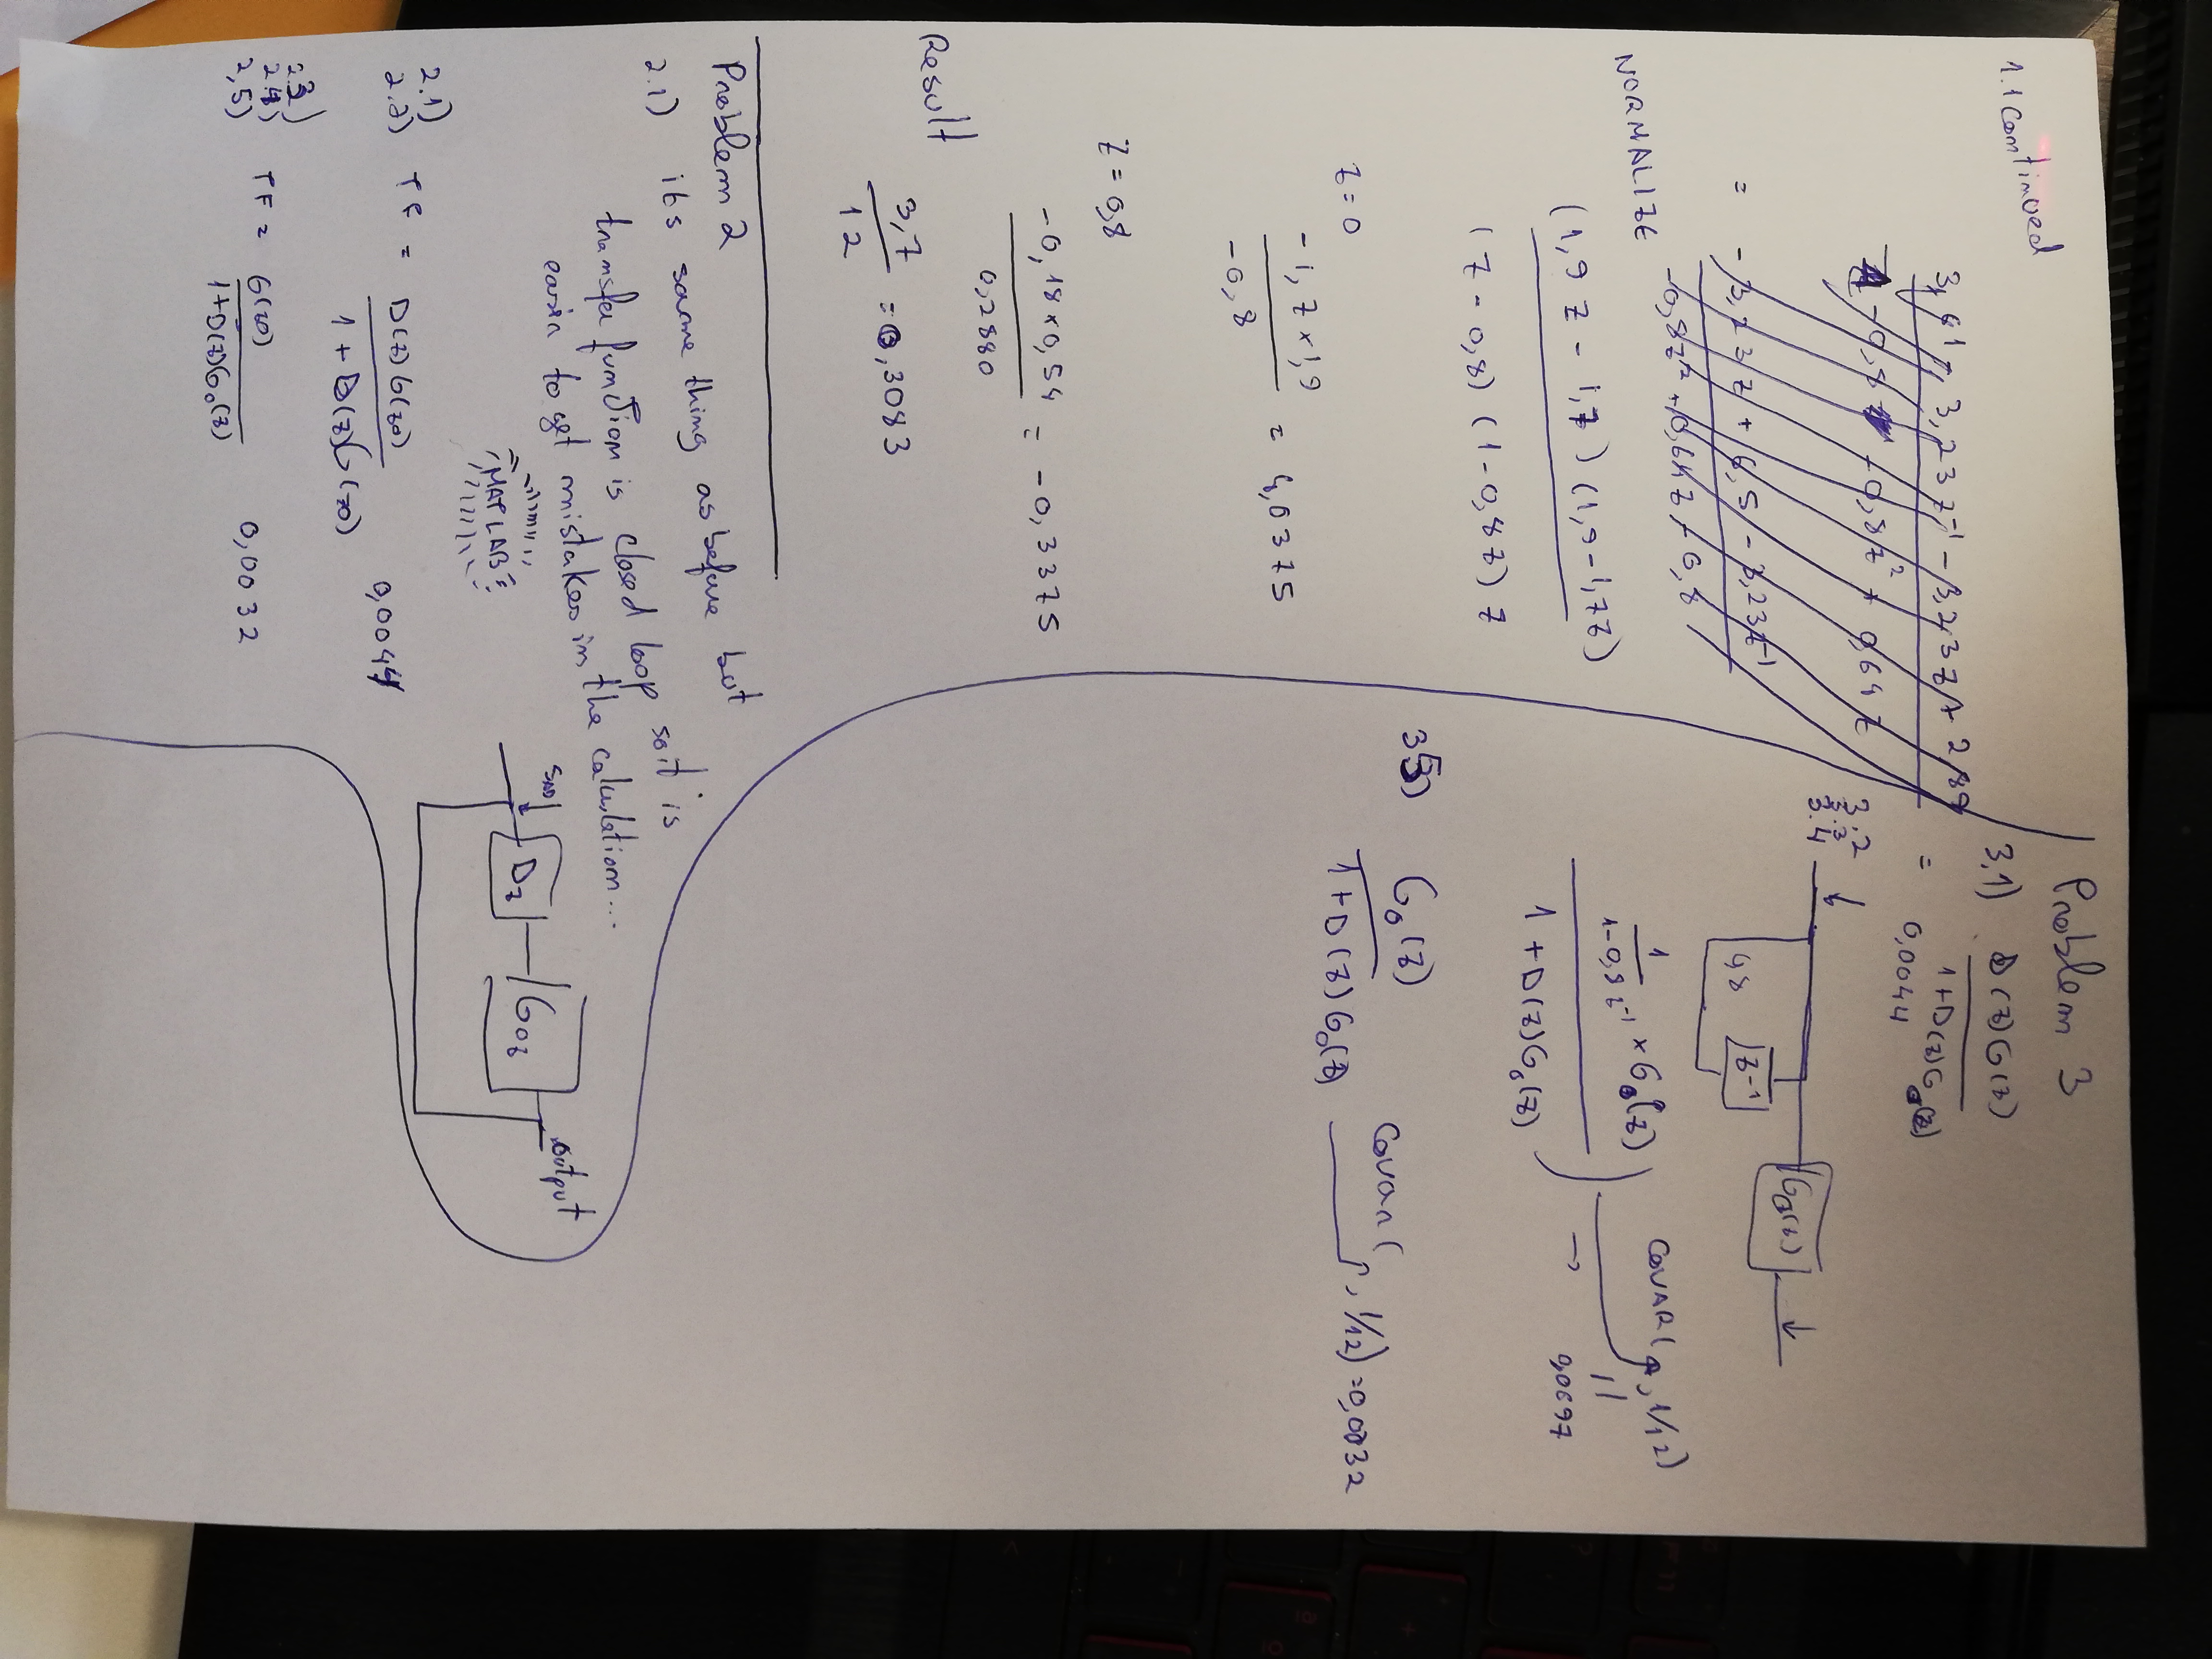 1.1 continued
3,61 - 3,23z⁻¹ - 3,23z + 2,89
- 0,8z² + 0,64z
= -3,23z + 6,5 - 3,23z⁻¹
-0,8z² + 0,64z - 0,8
NORMALIZE
(1,9z - 1,7) (1,9-1,7z)
(z - 0,8) (1-0,8z) z
z=0
-1,7×1,9
= 4,0375
-0,8
z = 0,8
-0,18×0,54
= -0,3375
0,2880
Result
3,7
= 0,3083
12
Problem 2
2.1) its same thing as before but
transfer function is closed loop so it is
easier to get mistakes in the calculation...
MATLAB
2.1)
2.2) TF = D(z)G(z0)
1 + D(z)G(z0)
0,0044
2.3)
2.4) TF = G(z0)
2,5)
1+D(z)G₀(z)
0,0032
Problem 3
3,1) D(z)G(z)
1+D(z)G₀(z)
= 0,0044
3.2
3.3
3.4
G₀(z)
z⁻¹
1
1-0,8z⁻¹ × G₀(z)
1 + D(z)G₀(z)
→
COVAR( , 1/12)
||
0,0697
35) G₀(z)
1+D(z)G₀(z)
Covar( , 1/12) = 0,0032
Dz
G0z
output